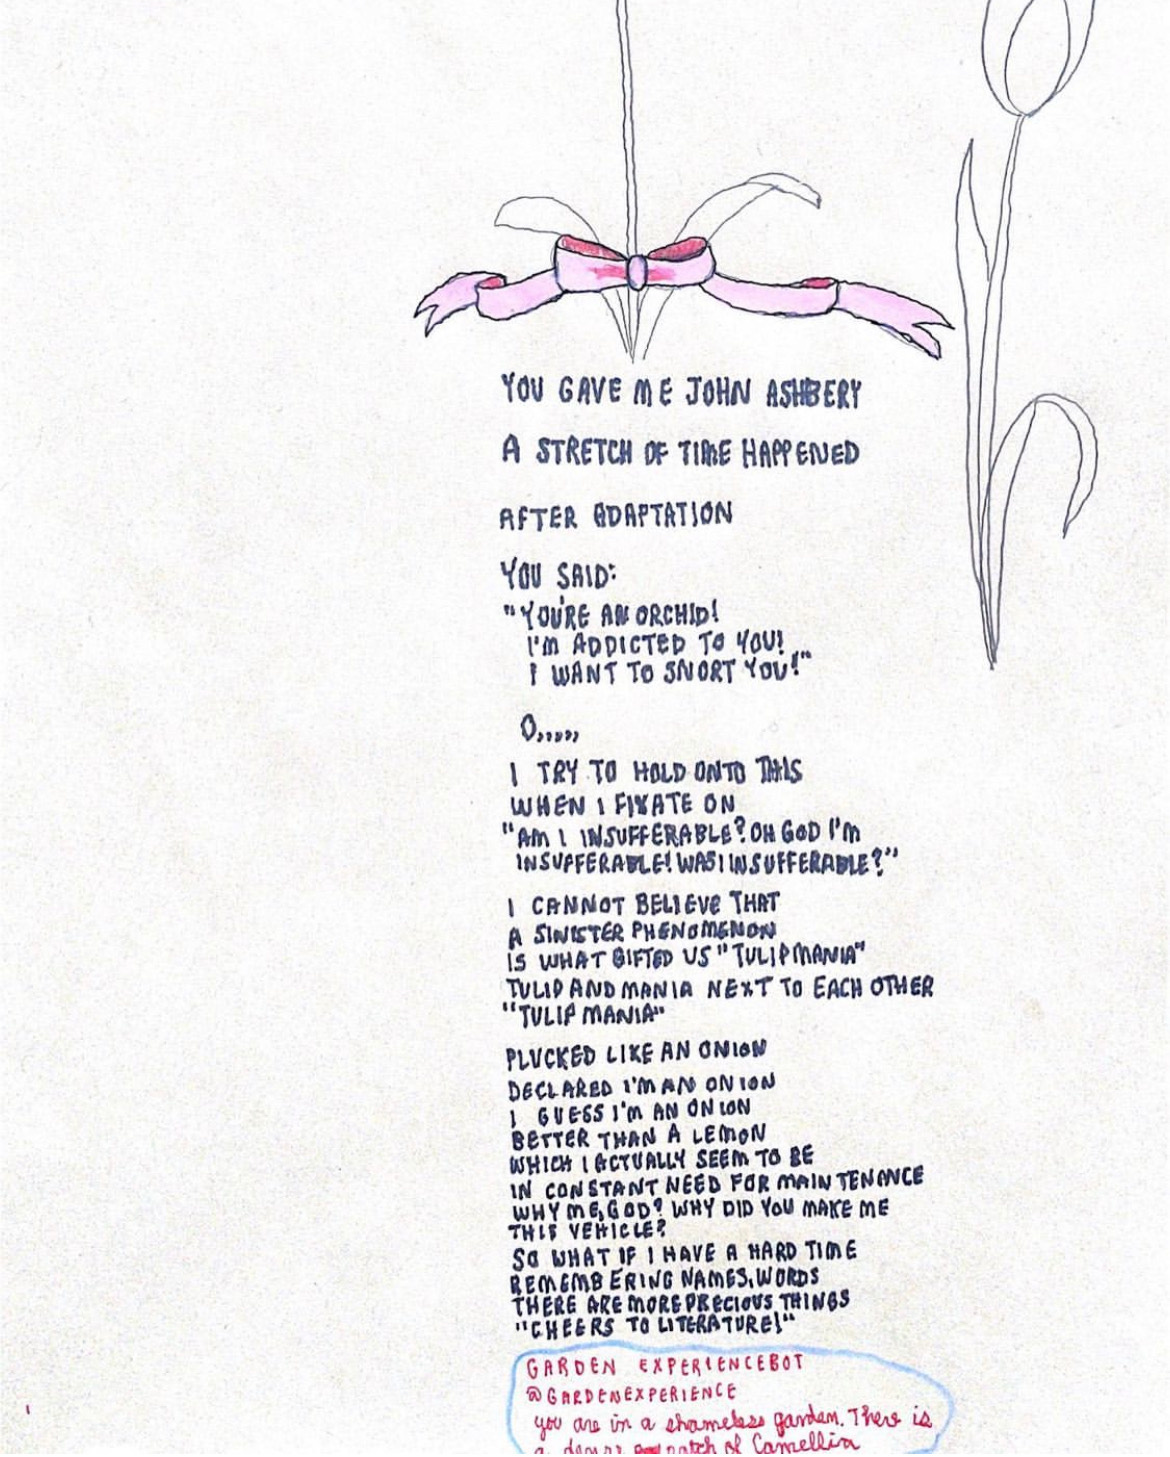 YOU GAVE ME JOHN ASHBERY
A STRETCH OF TIME HAPPENED
AFTER ADAPTATION
YOU SAID:
"YOU'RE AN ORCHID!
I'M ADDICTED TO YOU!
I WANT TO SNORT YOU!"
O,,,,,
I TRY TO HOLD ONTO THIS
WHEN I FIXATE ON
"AM I INSUFFERABLE? OH GOD I'M
INSUFFERABLE! WAS I INSUFFERABLE?"
I CANNOT BELIEVE THAT
A SINISTER PHENOMENON
IS WHAT GIFTED US "TULIPMANIA"
TULIP AND MANIA NEXT TO EACH OTHER
"TULIP MANIA"
PLUCKED LIKE AN ONION
DECLARED I'M AN ONION
I GUESS I'M AN ONION
BETTER THAN A LEMON
WHICH I ACTUALLY SEEM TO BE
IN CONSTANT NEED FOR MAINTENANCE
WHY ME, GOD? WHY DID YOU MAKE ME
THIS VEHICLE?
SO WHAT IF I HAVE A HARD TIME
REMEMBERING NAMES, WORDS
THERE ARE MORE PRECIOUS THINGS
"CHEERS TO LITERATURE!"
GARDEN EXPERIENCEBOT
@GARDENEXPERIENCE
you are in a shameless garden. There is
a dense patch of Camellia